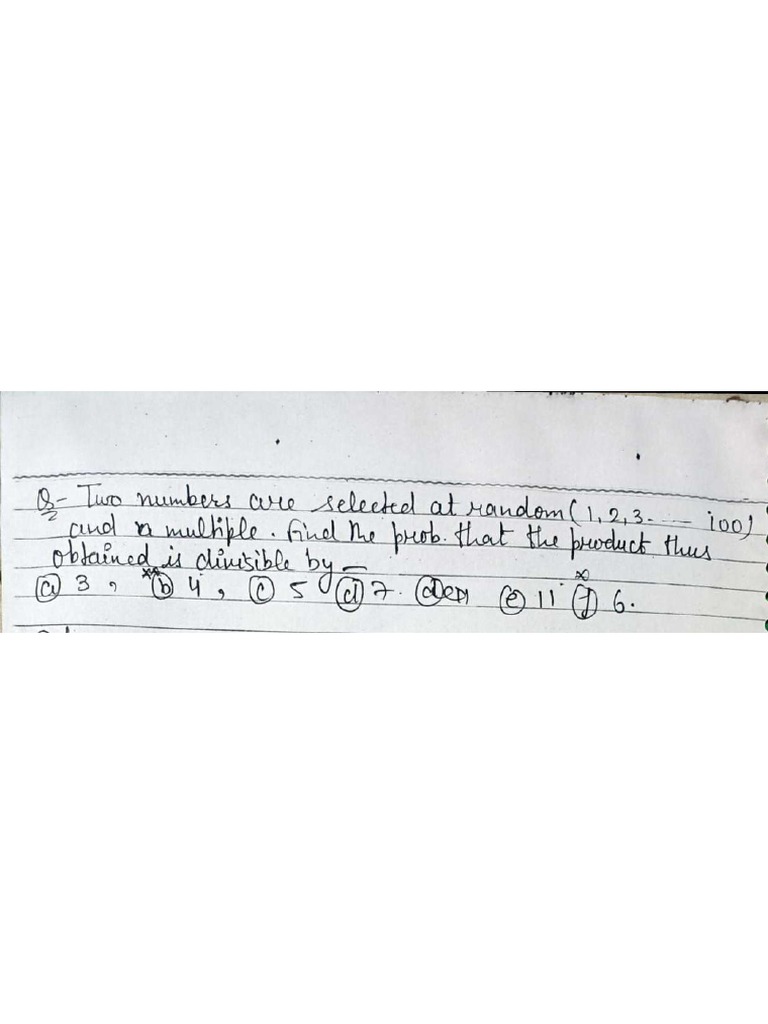 Q- Two numbers are selected at random (1, 2, 3. --- 100)
and multiple. Find the prob. that the product thus
obtained is divisible by —
(a) 3 , ** (b) 4 , (c) 5 (d) 7. (d) (e) 11 (f) 6.